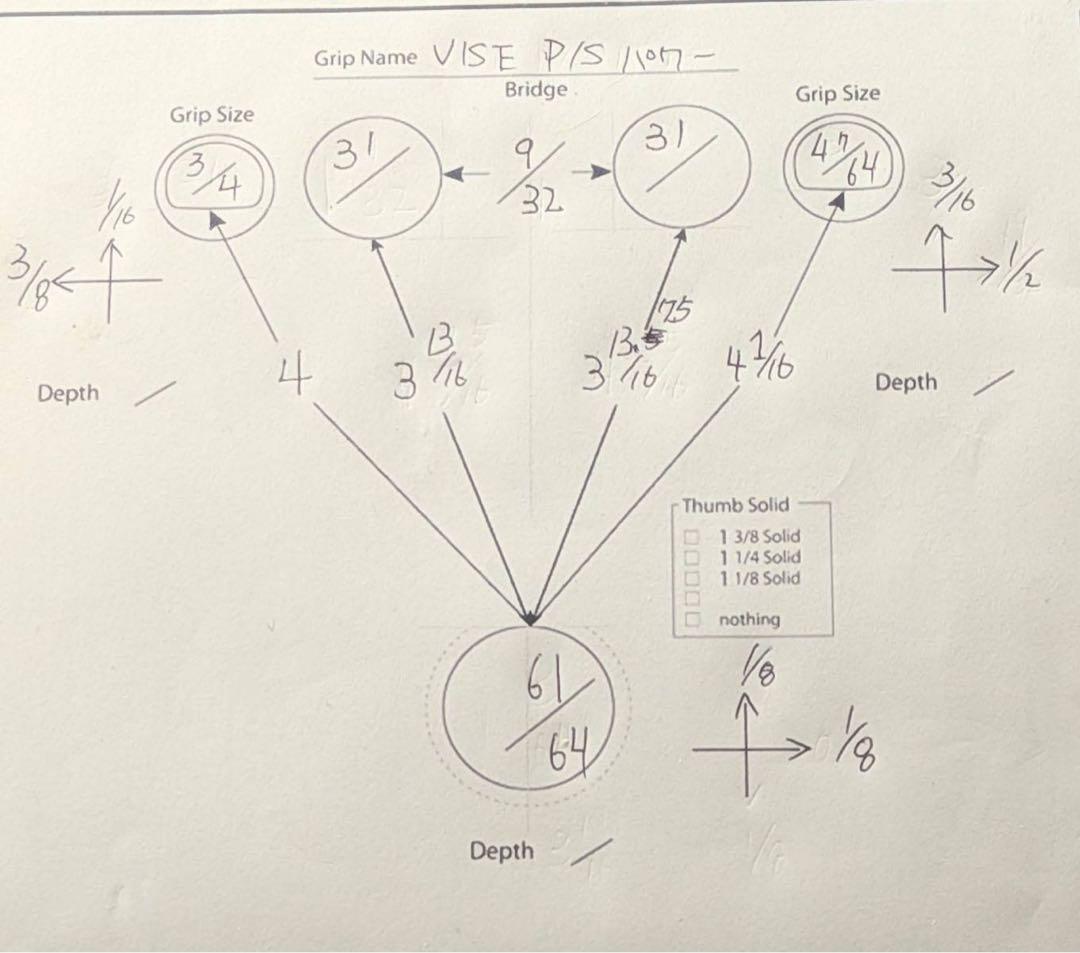 Grip Name VISE P/S パワー
Bridge
Grip Size 3/4
31/
9/32
31/
Grip Size 47/64
1/16
3/8
3/16
1/2
4
3 13/16
3 13.75/16
4 1/16
Depth /
Depth /
Thumb Solid
1 3/8 Solid
1 1/4 Solid
1 1/8 Solid
nothing
61/64
1/8
1/8
Depth /